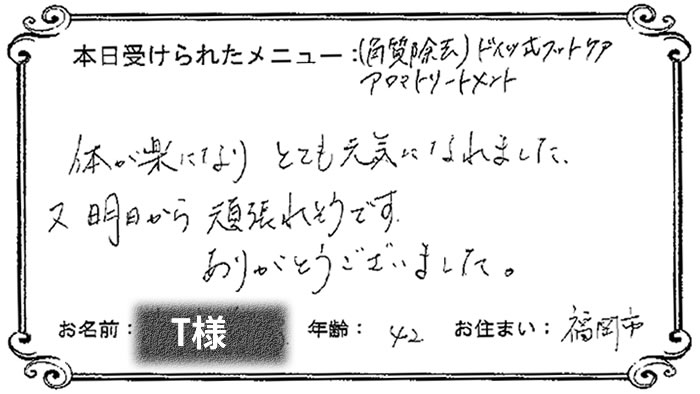 本日受けられたメニュー：(角質除去) ドイツ式フットケア
アロマトリートメント
体が楽になり とても元気になれました。
又 明日から 頑張れそうです。
ありがとうございました。
お名前： T様 年齢： 42 お住まい： 福岡市